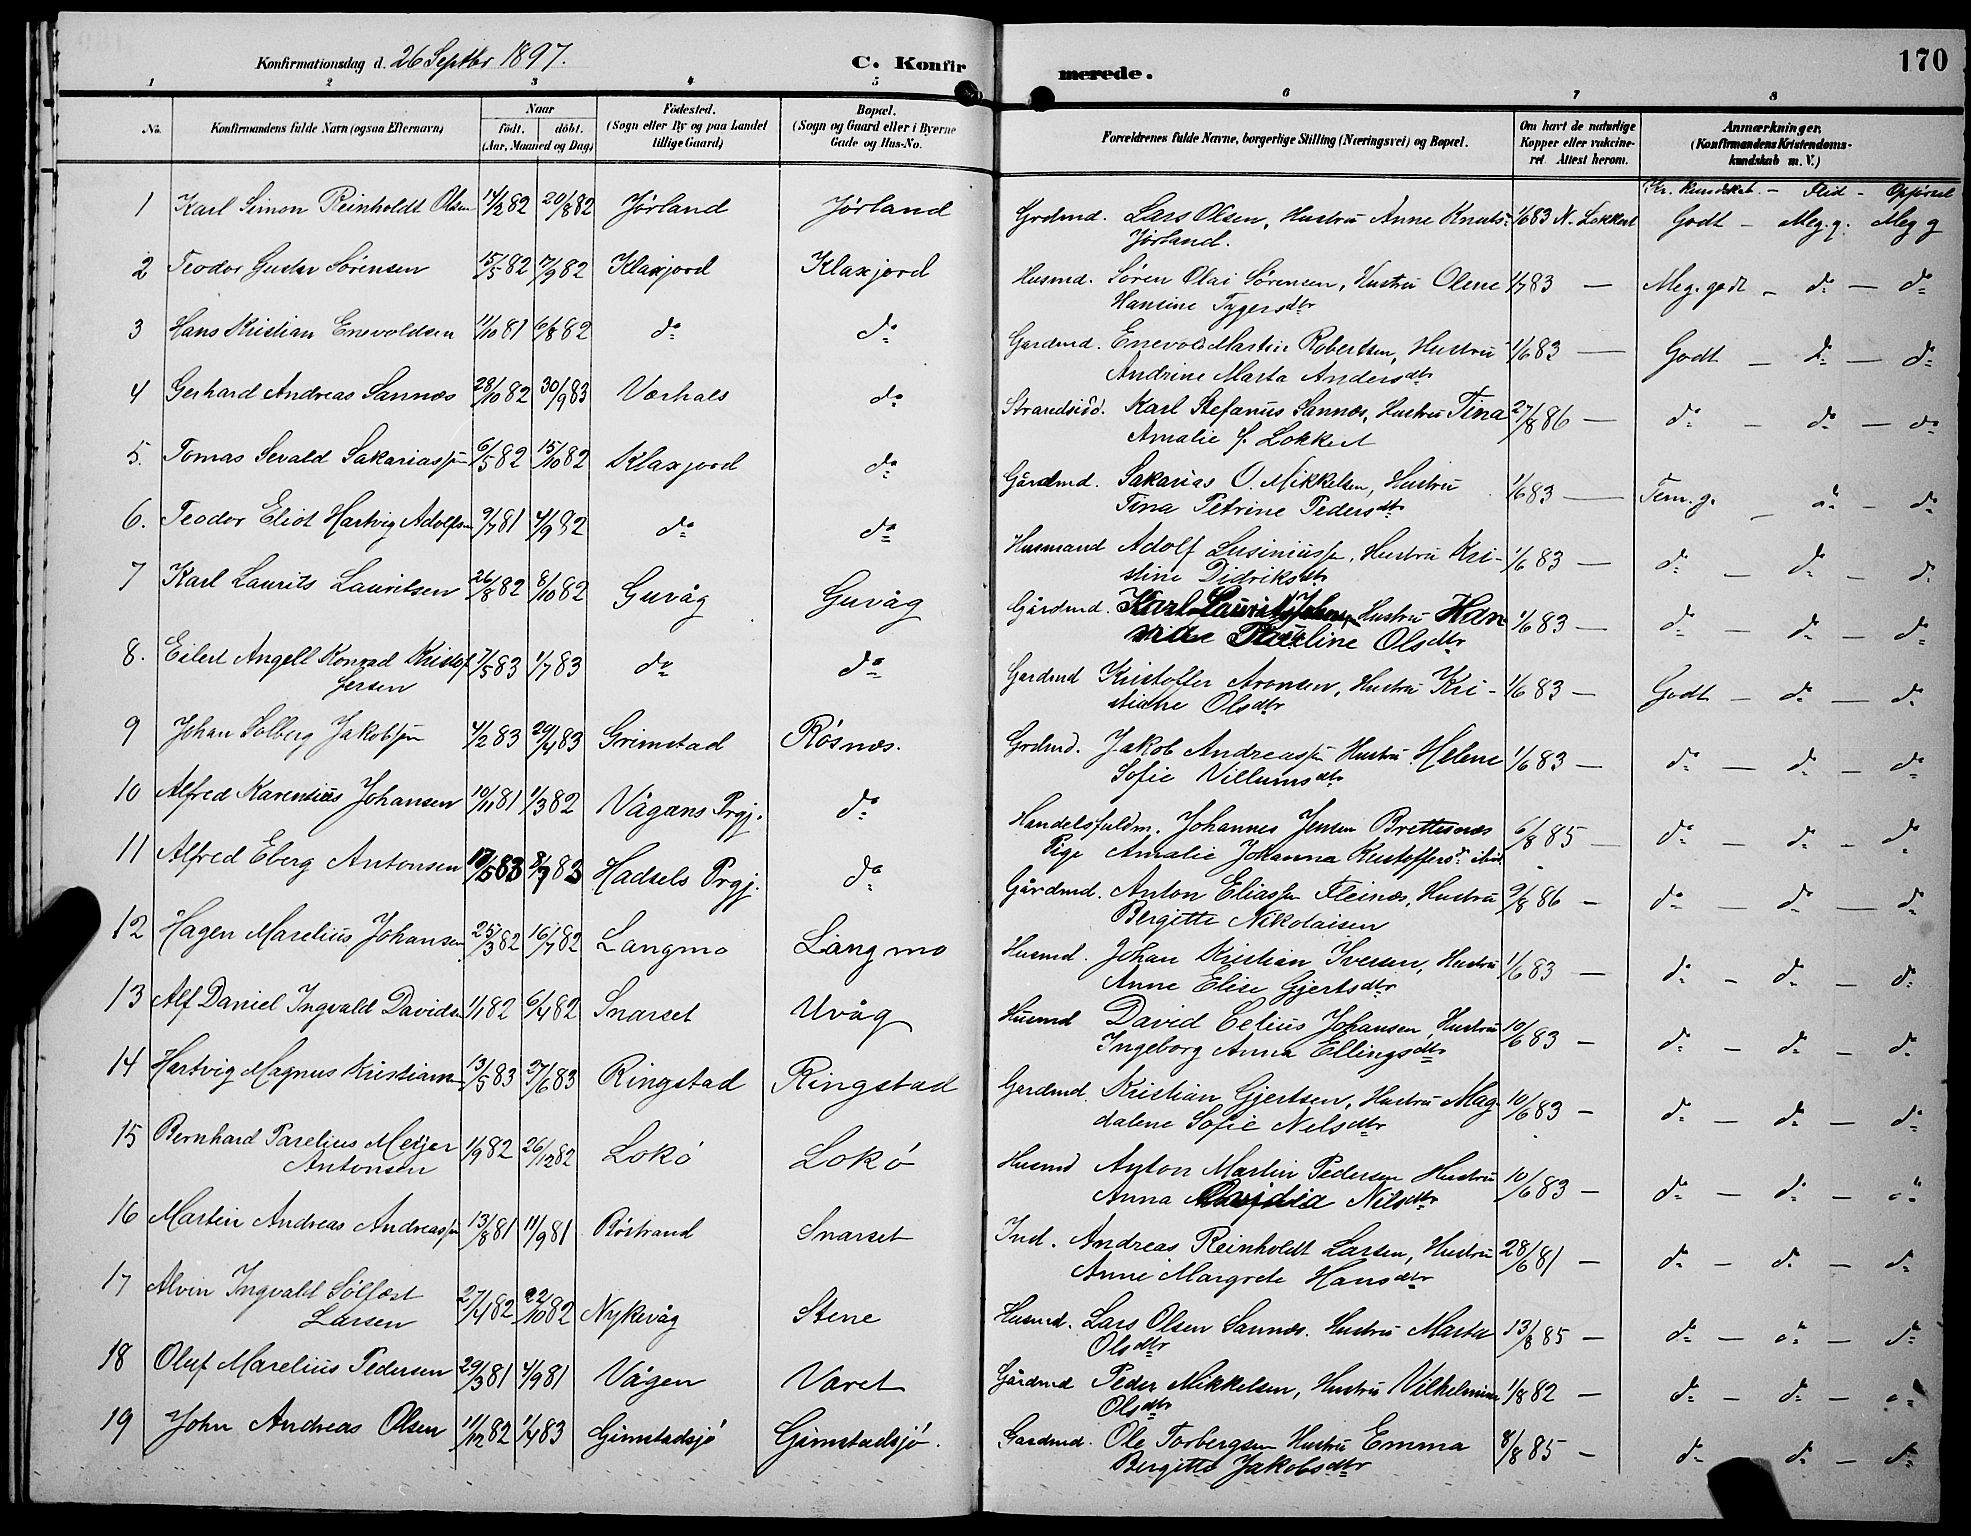 Konfirmationsdag d. 26 Septbr 1897.
C. Konfirmerede.
170
1 2 3 4 5 6 7 8
No.
Konfirmandens fulde Navn (ogsaa Efternavn)
Naar
födt. döbt.
(Aar, Maaned og Dag)
Födested.
(Sogn eller By og paa Landet
tillige Gaard)
Bopæl.
(Sogn og Gaard eller i Byerne
Gade og Hus-No.
Forældrenes fulde Navne, borgerlige Stilling (Næringsvei) og Bopæl.
Om havt de naturlige
Kopper eller vakcine-
ret. Attest herom.
Anmærkninger.
(Konfirmandens Kristendoms-
kundskab m. V.)
Kr. kundskab - Flid - Opförsel
1 Karl Simon Reinholdt Olsen 17/2 82 20/8 82 Jørland Jørland Grdmd. Lars Olsen, Hustru Anne Knuts- 1/6 83 N. Lokkert Godt - Meg. g. - Meg g
Jørland.
2 Teodor Gustav Sørensen 15/5 82 17/9 82 Klaxjord Klaxjord Husmd. Søren Olai Sørensen, Hustru Olene 1/7 83 — Meg. godt - do - do
Hansine Tygersdtr
3 Hans Kristian Enevoldsen 11/10 81 6/8 82 do do Gardmd. Enevold Martin Robertsen, Hustru 1/6 83 — Godt - do - do
Andrine Marta Andersdtr
4 Gerhard Andreas Sannes 28/10 82 30/9 83 Vorhals do Strandsidd. Karl Stefanus Sannes, Hustru Tina 27/8 86 — do - do - do
Amalie J. Lokkert
5. Tomas Sevald Sakariassen 6/5 82 15/10 82 Klaxjord do Gårdmd. Sakarias O. Mikkelsen, Hustru 1/6 83 — Tem. g. - do - do
Tina Petrine Pedersdtr
6. Teodor Eliot Hartvig Adolfsen 9/7 81 4/9 82 do do Husmand Adolf Lusiniussen, Hustru Kri- 1/6 83 — do - do - do
stine Didriksdtr
7 Karl Laurits Lauritsen 26/8 82 8/10 82 Guvåg Guvåg Gårdmd. Karl Laurits Johnsen, Hustru Han 1/6 83 — do - do - do
sine Pauline Olsdtr
8. Eilert Angell Konrad Kristof 7/5 83 1/7 83 do do Gardmd Kristoffer Aronsen, Hustru Kri- 1/6 83 — Godt - do - do
fersen stiane Olsdtr
9 Johan Solberg Jakobsen 4/2 83 29/4 83 Grimstad Røsnes. Grdmd. Jakob Andreassen Hustru Helene 1/6 83 — do - do - do
Sofie Villumsdtr
10 Alfred Karentius Johansen 10/11 81 1/3 82 Vågans Prgj. do Handelsfuldm. Johannes Jensen Brettesnes 6/8 85 — do - do - do
Pige Amalie Johanna Kristoffersdr ibid.
11 Alfred Eberg Antonsen 17/5 83 8/7 83 Hadsels Prgj. do Gårdmd. Anton Eliassen Fleines, Hustru 9/8 86 — do - do - do
Bergitte Nikolaisen
12 Hagen Marelius Johansen 25/3 82 16/7 82 Langmo Langmo Husmd. Johan Kristian Iversen, Hustru 1/6 83 — do - do - do
Anne Elise Gjertsdtr
13 Alf Daniel Ingvald Davidsen 1/1 82 6/4 82 Snarset Uvåg Husmd David Celius Johansen, Hustru 10/6 83 — do - do - do
Ingeborg Anna Ellingsdtr
14 Hartvig Magnus Kristiansen 13/5 83 3/6 83 Ringstad Ringstad Gardmd. Kristian Gjertsen, Hustru Mag- 10/6 83 — do - do - do
dalene Sofie Nelsdtr
15 Bernhard Parelius Meijer 1/9 82 26/12 82 Lokø Lokø Husmd Anton Martin Pedersen Hustru 10/6 83 — do - do - do
Antonsen Anna Ovidia Nilsdtr
16 Martin Andreas Andreassen 13/8 81 11/9 81 Røstrand Snarset Ind. Andreas Reinholdt Larsen, Hustru 28/6 81 — do - do - do
Anne Margrete Hansdtr
17 Alvin Ingvald Solfast 27/4 82 22/10 82 Nykevåg Stene Husmd. Lars Olsen Sannes. Hustru Marta 13/8 85 — do - do - do
Larsen Olsdtr
18 Oluf Marelius Pedersen 29/3 81 4/9 81 Vågen Varet Gårdmd Peder Mikkelsen, Hustru Vilhelmine 1/8 82 — do - do - do
Olsdtr
19 John Andreas Olsen 11/12 82 1/4 83 Gimstadsjø Gimstadsjø. Gardmd. Ole Torbergsen Hustru Emma 8/8 85 — do - do - do
Bergitte Jakobsdtr